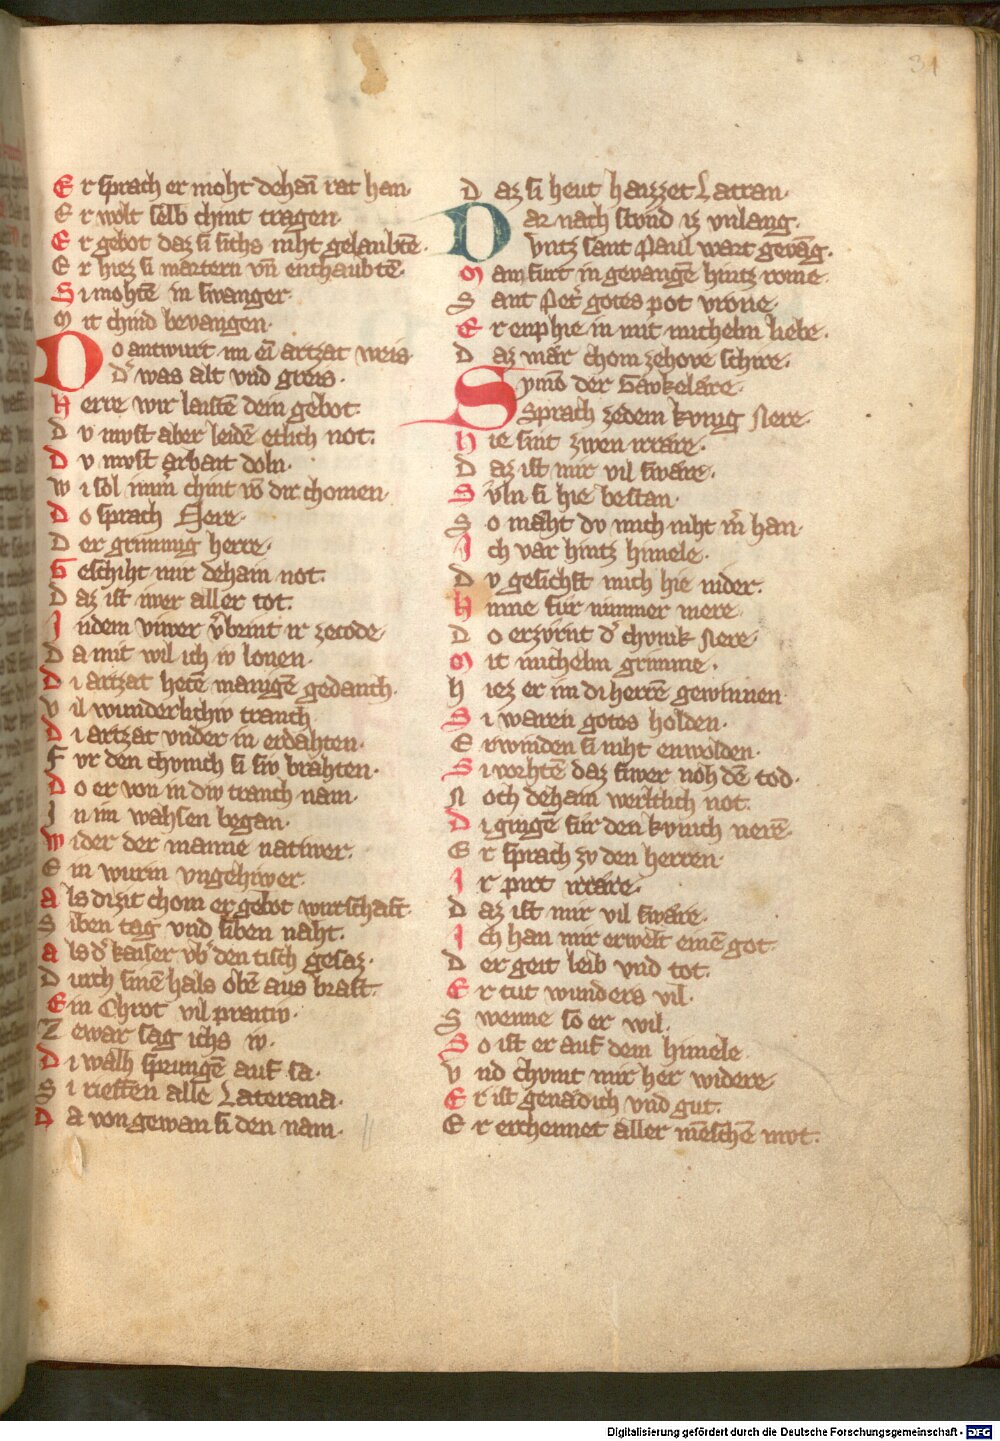 31
Er sprach er moht dehaī rat han·
Er wolt selb chint tragen·
Er gebot daz si sichs niht gelaubtē·
Er hiez si martern vn̄ enthaubtē·
Si mohtē in swanger·
Mit chind bevangen·
Do antwurt im eī artzat weis
Dˢ was alt vnd greis·
Herre wir laistē dein gebot·
Dv mvst aber leidē etlich not·
Dv mvst arbait doln·
Wi sol im̄ chint vō dir chomen·
Do sprach Nere·
Der grimmig herre·
Geschiht mir dehain not·
Daz ist iwer aller tot·
Indem viwer v̓brint ir zetode·
Da mit wil ich iv lonen·
Di artzat hetē manigē gedanch·
Vil wunderlichiv tranch
Di artzat vnder in erdahten·
Fvr den chvnich si siv brahten·
Do er von in div tranch nam·
In im wahsen began·
Wider der manne natiwer·
Ein wurm vngehiwer·
Als di zit chom er gebot wirtschaft·
Siben tag vnd siben naht·
Als dˢ kaiser vbˢ den tisch gesaz·
Durch sinē hals obē aus brast·
Ein Chrot vil praitiv·
Zewar sag ichs iv·
Di walh sprungē auf sa·
Si rieffen alle Laterana·
Da von gewan si den nam·
Daz si heut haizzet Latran·
Dar nach stvnd iz vnlang·
Vntz sant Paul wart gevāg·
Man furt in gevangē hintz rome·
Sant Pet̄ gotes pot vrone·
Er enphie in mit michelm liebe·
Daz mār chom zehove schire·
Symō der Gavkelare·
Sprach zedem kvnig Nere·
Hie sint zwen irrare·
Daz ist mir vil sware·
Svln si hie bestan·
So maht dv mich niht m̄ han·
Ich var hintz himele·
Dv gesichst mich hie nider·
Hinne fur nimmer mere·
Do erzvrnt dˢ chvnik Nere·
Mit michelm grimme·
Hiez er im di herrē gewinnen·
Si waren gotes holden·
Erwinden si niht enwolden·
Si vorhtē daz swer noh dē tod·
Noch dehain werltlich not·
Di gingē fur den kvnich nerē·
Er sprach zv den herren·
Ir pirt irrare·
Daz ist mir vil sware·
Ich han mir erwelt einē got·
Der geit leib vnd tot·
Er tut wunders vil·
Swenne so er wil·
So ist er auf dem himele
Vnd chvmt mir her widere·
Er ist genadich vnd gut·
Er erchennet aller mēschē mvt·
Digitalisierung gefördert durch die Deutsche Forschungsgemeinschaft - DFG